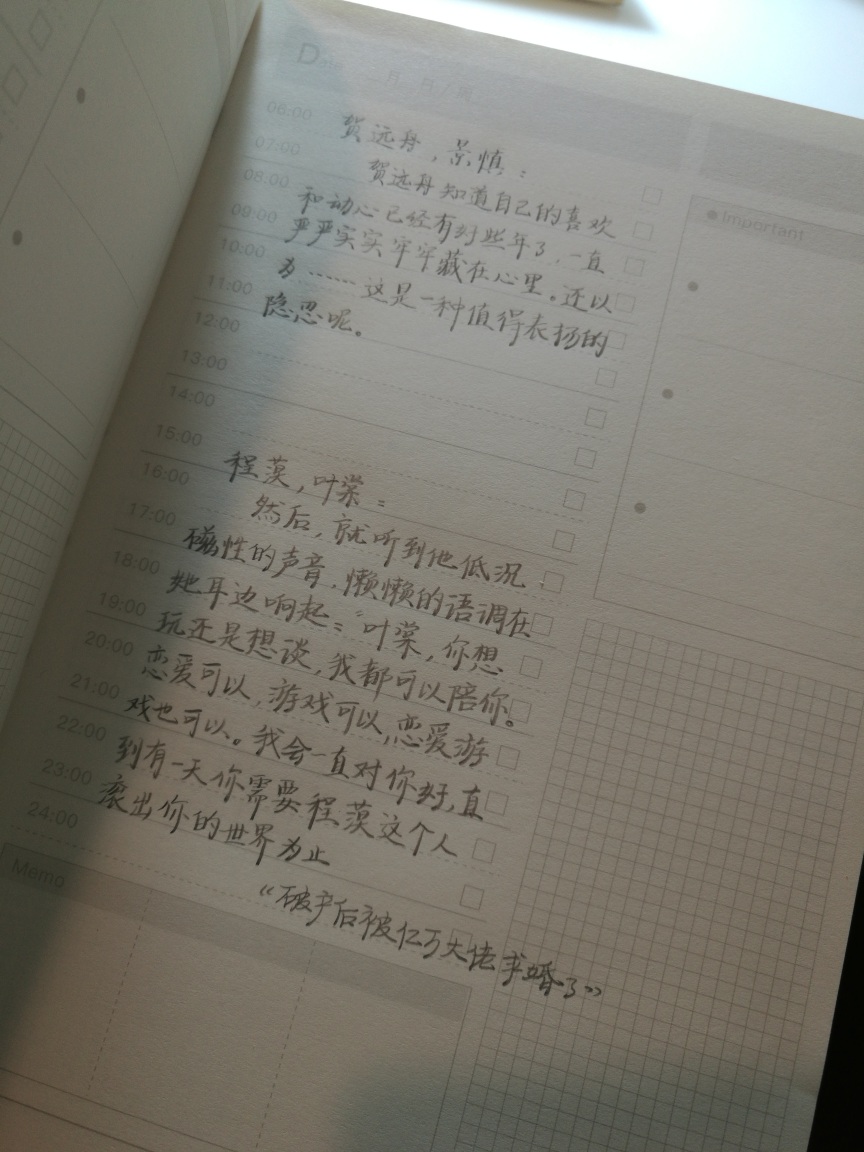 D
月 日
Important
06:00
07:00
08:00
09:00
10:00
11:00
12:00
13:00
14:00
15:00
16:00
17:00
18:00
19:00
20:00
21:00
22:00
23:00
24:00
贺远舟，景慎：
贺远舟知道自己的喜欢
和动心已经有好些年了，一直
严严实实牢牢藏在心里。还以
为……这是一种值得表扬的
隐忍呢。
程漠，叶棠：
然后，就听到他低沉
磁性的声音，懒懒的语调在
她耳边响起：“叶棠，你想
玩还是想谈，我都可以陪你。
恋爱可以，游戏可以，恋爱游
戏也可以。我会一直对你好，直
到有一天你需要程漠这个人
滚出你的世界为止
“破产后被亿万大佬求婚了”
Memo